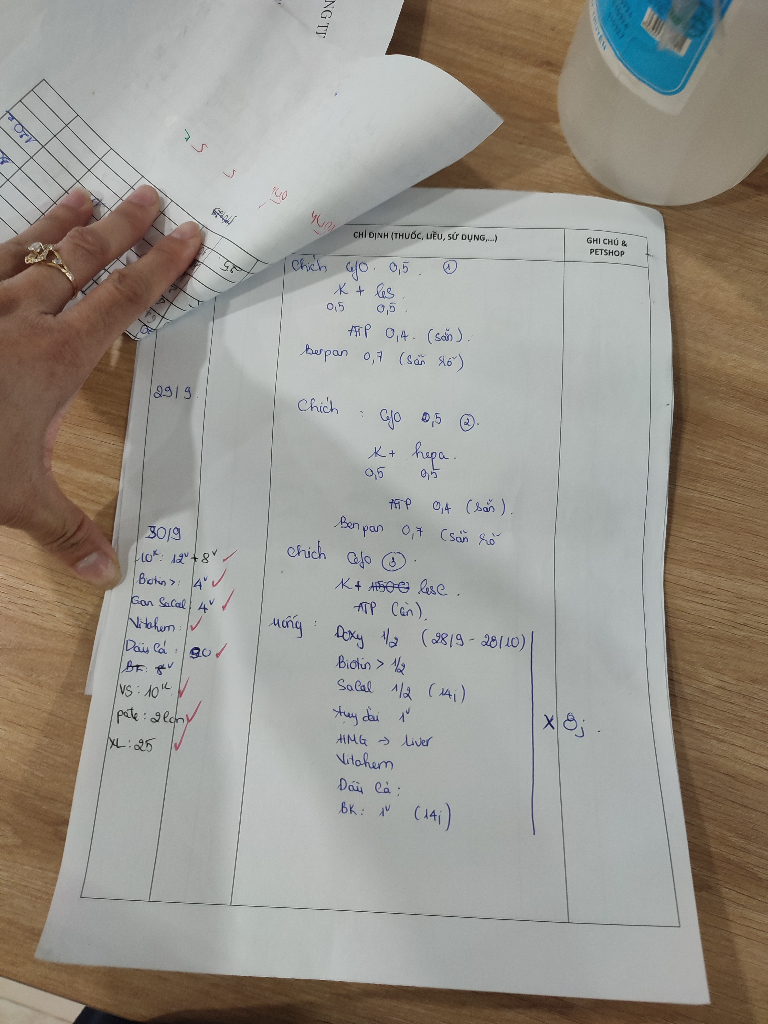 CHỈ ĐỊNH (THUỐC, LIỀU, SỬ DỤNG,...)
GHI CHÚ & PETSHOP
Chích 0,5 ①
K + les
0,5 0,5
ATP 0,4 (sẵn).
Benpan 0,7 (sẵn
29/9
Chích : 0,5 ②.
K + hepa.
0,5 0,5
ATP 0,4 (sẵn).
Benpan 0,7 (sẵn
30/9
10k: 12v + 8v
Biotin >: 4v
Gan Sacal: 4v
Vitahem:
Dầu Cá: 20
BK: 8v
VS: 10k
pate: 2lon
XL: 25
Chích ③.
K + lesC.
ATP (cân).
uống :
Doxy 1/2 (28/9 - 28/10)
Biotin > 1/2
SaCal 1/2 (14j)
1v
HMG → liver
Vitahem
Dầu Cá :
BK: 1v (14j)
X 8j.